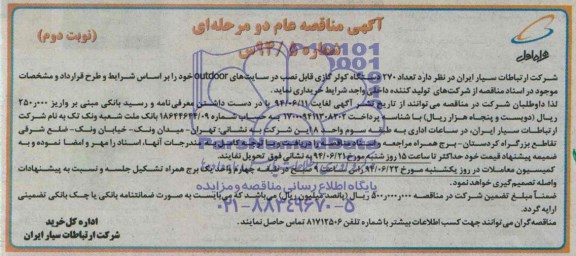 آگهی مناقصه عام دو مرحله‌ای
(نوبت دوم)
شماره ۹۴/۵/س
همراه اول
شرکت ارتباطات سیار ایران در نظر دارد تعداد ۲۷۰ دستگاه کولر گازی قابل نصب در سایت‌های outdoor خود را بر اساس شرایط و طرح قرارداد و مشخصات
موجود در اسناد مناقصه از شرکت‌های تولید کننده داخلی واجد شرایط خریداری نماید.
لذا داوطلبان شرکت در مناقصه می‌توانند از تاریخ نشر آگهی لغایت ۹۴/۰۶/۱۱ با در دست داشتن معرفی‌نامه و رسید بانکی مبنی بر واریز ۲۵۰٫۰۰۰
ریال (دویست و پنجاه هزار ریال) با شناسه پرداخت به حساب شماره ۱۸۶۴۴۶۴۴/۰۹ بانک ملت شعبه ونک تک به نام شرکت
ارتباطات سیار ایران، در ساعات اداری به طبقه سوم واحد ۸ این شرکت به نشانی: تهران- میدان ونک- خیابان ونک- ضلع شرقی
تقاطع بزرگراه کردستان- برج همراه مراجعه و اسناد مناقصه را دریافت و با توجه کامل به مندرجات آنها، اسناد را مهر و امضا نموده و به
ضمیمه پیشنهاد قیمت خود حداکثر تا ساعت ۱۵ روز شنبه مورخ ۹۴/۰۶/۲۱ به نشانی فوق تحویل نمایند.
کمیسیون معاملات در روز یکشنبه مورخ ۹۴/۰۶/۲۲ راس ساعت ۹ صبح در طبقه چهارم واحد یک برج همراه تشکیل جلسه و نسبت به پیشنهادات
واصله تصمیم‌گیری خواهد نمود.
ضمناً مبلغ تضمین شرکت در مناقصه ۵۰۰٫۰۰۰٫۰۰۰ ریال (پانصد میلیون ریال) می‌باشد که می‌بایست به صورت ضمانتنامه بانکی یا چک بانکی تضمینی
ارایه گردد.
مناقصه‌گران می‌توانند جهت کسب اطلاعات بیشتر با شماره تلفن ۸۱۷۱۲۵۰۶ تماس حاصل نمایند.
اداره کل خرید
شرکت ارتباطات سیار ایران
پایگاه اطلاع رسانی مناقصه و مزایده
۰۲۱-۸۸۳۴۹۶۷۰-۵